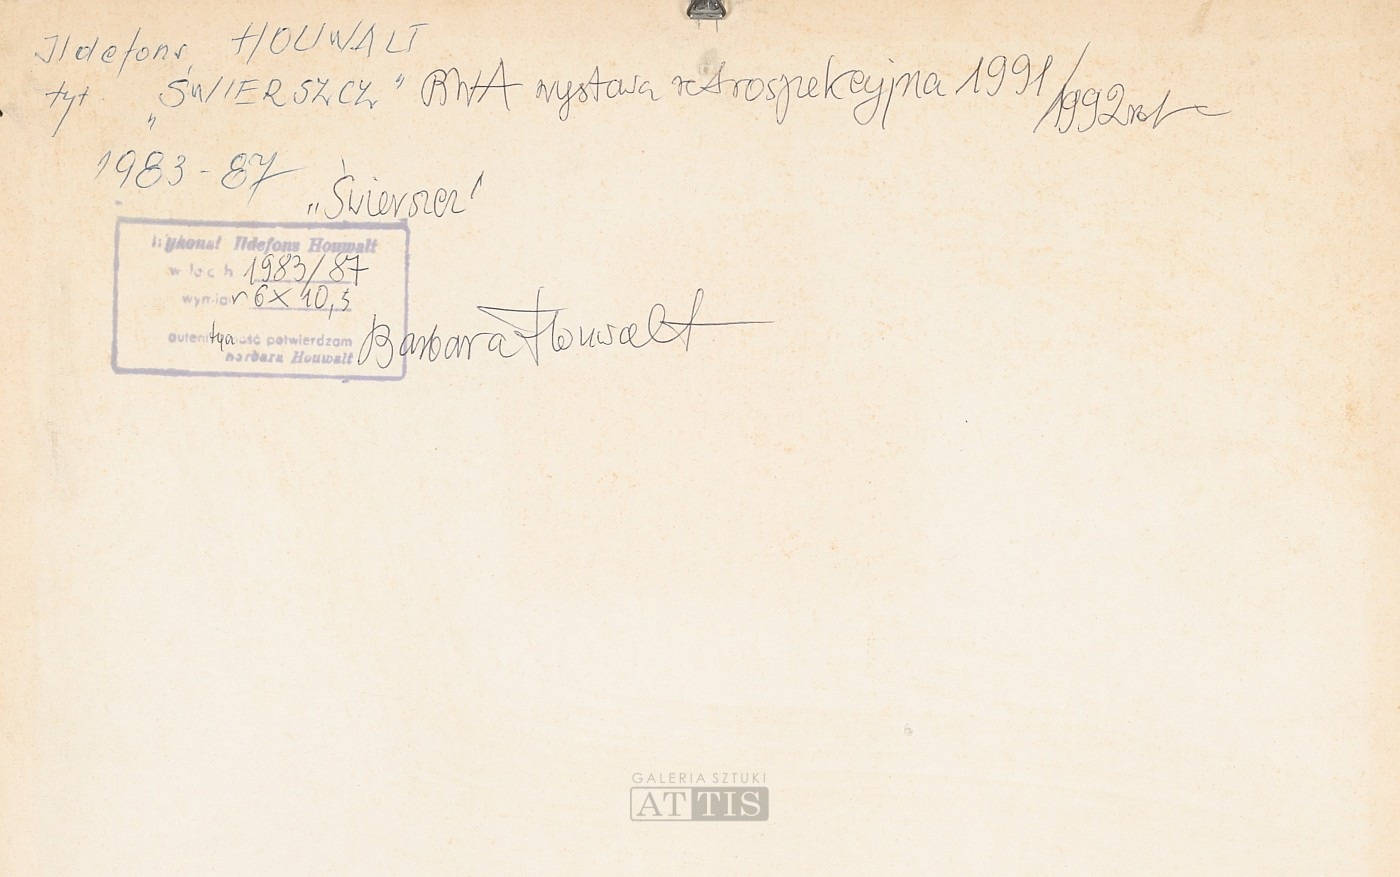 Ildefons HOUWALT
tyt „ŚWIERSZCZ" BWA wystawa retrospekcyjna 1991/1992 rok
1983-87
„Świerszcz"
Wykonał Ildefons Houwalt
w latach 1983/87
wymiar 6x10,5
autentyczność potwierdzam
Barbara Houwalt
Barbara Houwalt
GALERIA SZTUKI
ATTIS